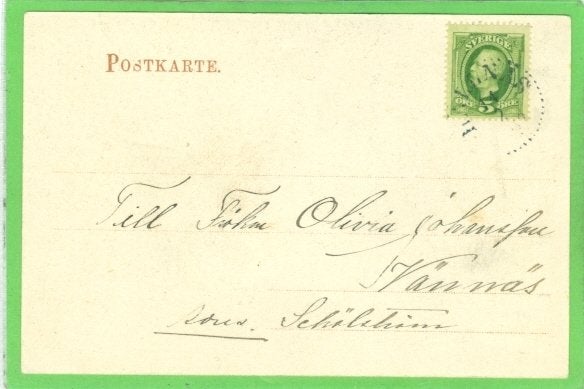 POSTKARTE.
SVERIGE
ÖRE 5 ÖRE
Till Fökn Olivia Johansson
Vännäs
Schölström